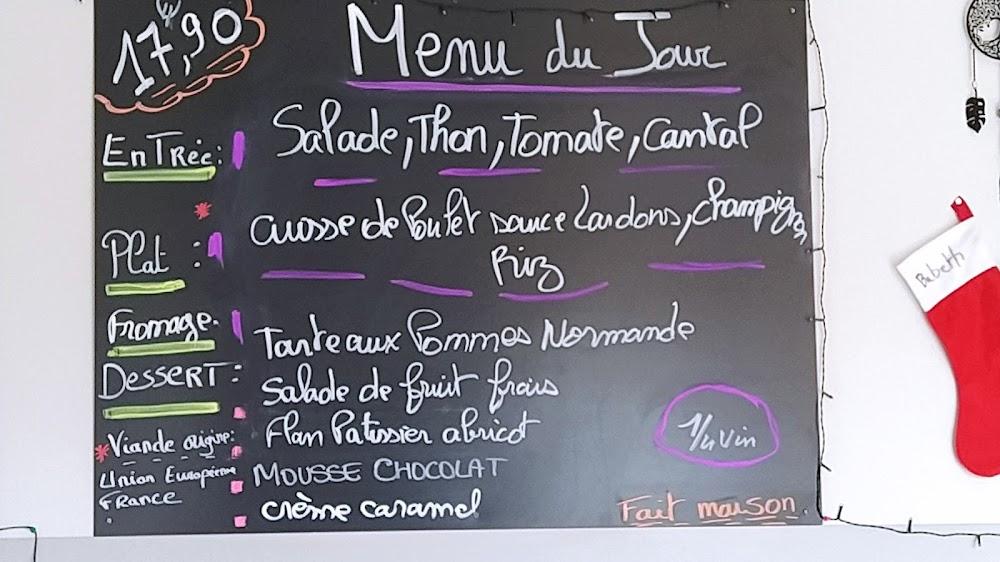 17,90 €
Menu du Jour
Entrée: Salade, Thon, Tomate, Cantal
* Plat: Cuisse de Poulet sauce Lardons, Champignon
Riz
Fromage.
Tarte aux Pommes Normande
Dessert:
Salade de fruit frais
Flan Patissier abricot
Mousse Chocolat
crème caramel
* Viande origine:
Union Européenne
France
1/4 vin
Fait maison
Babeth